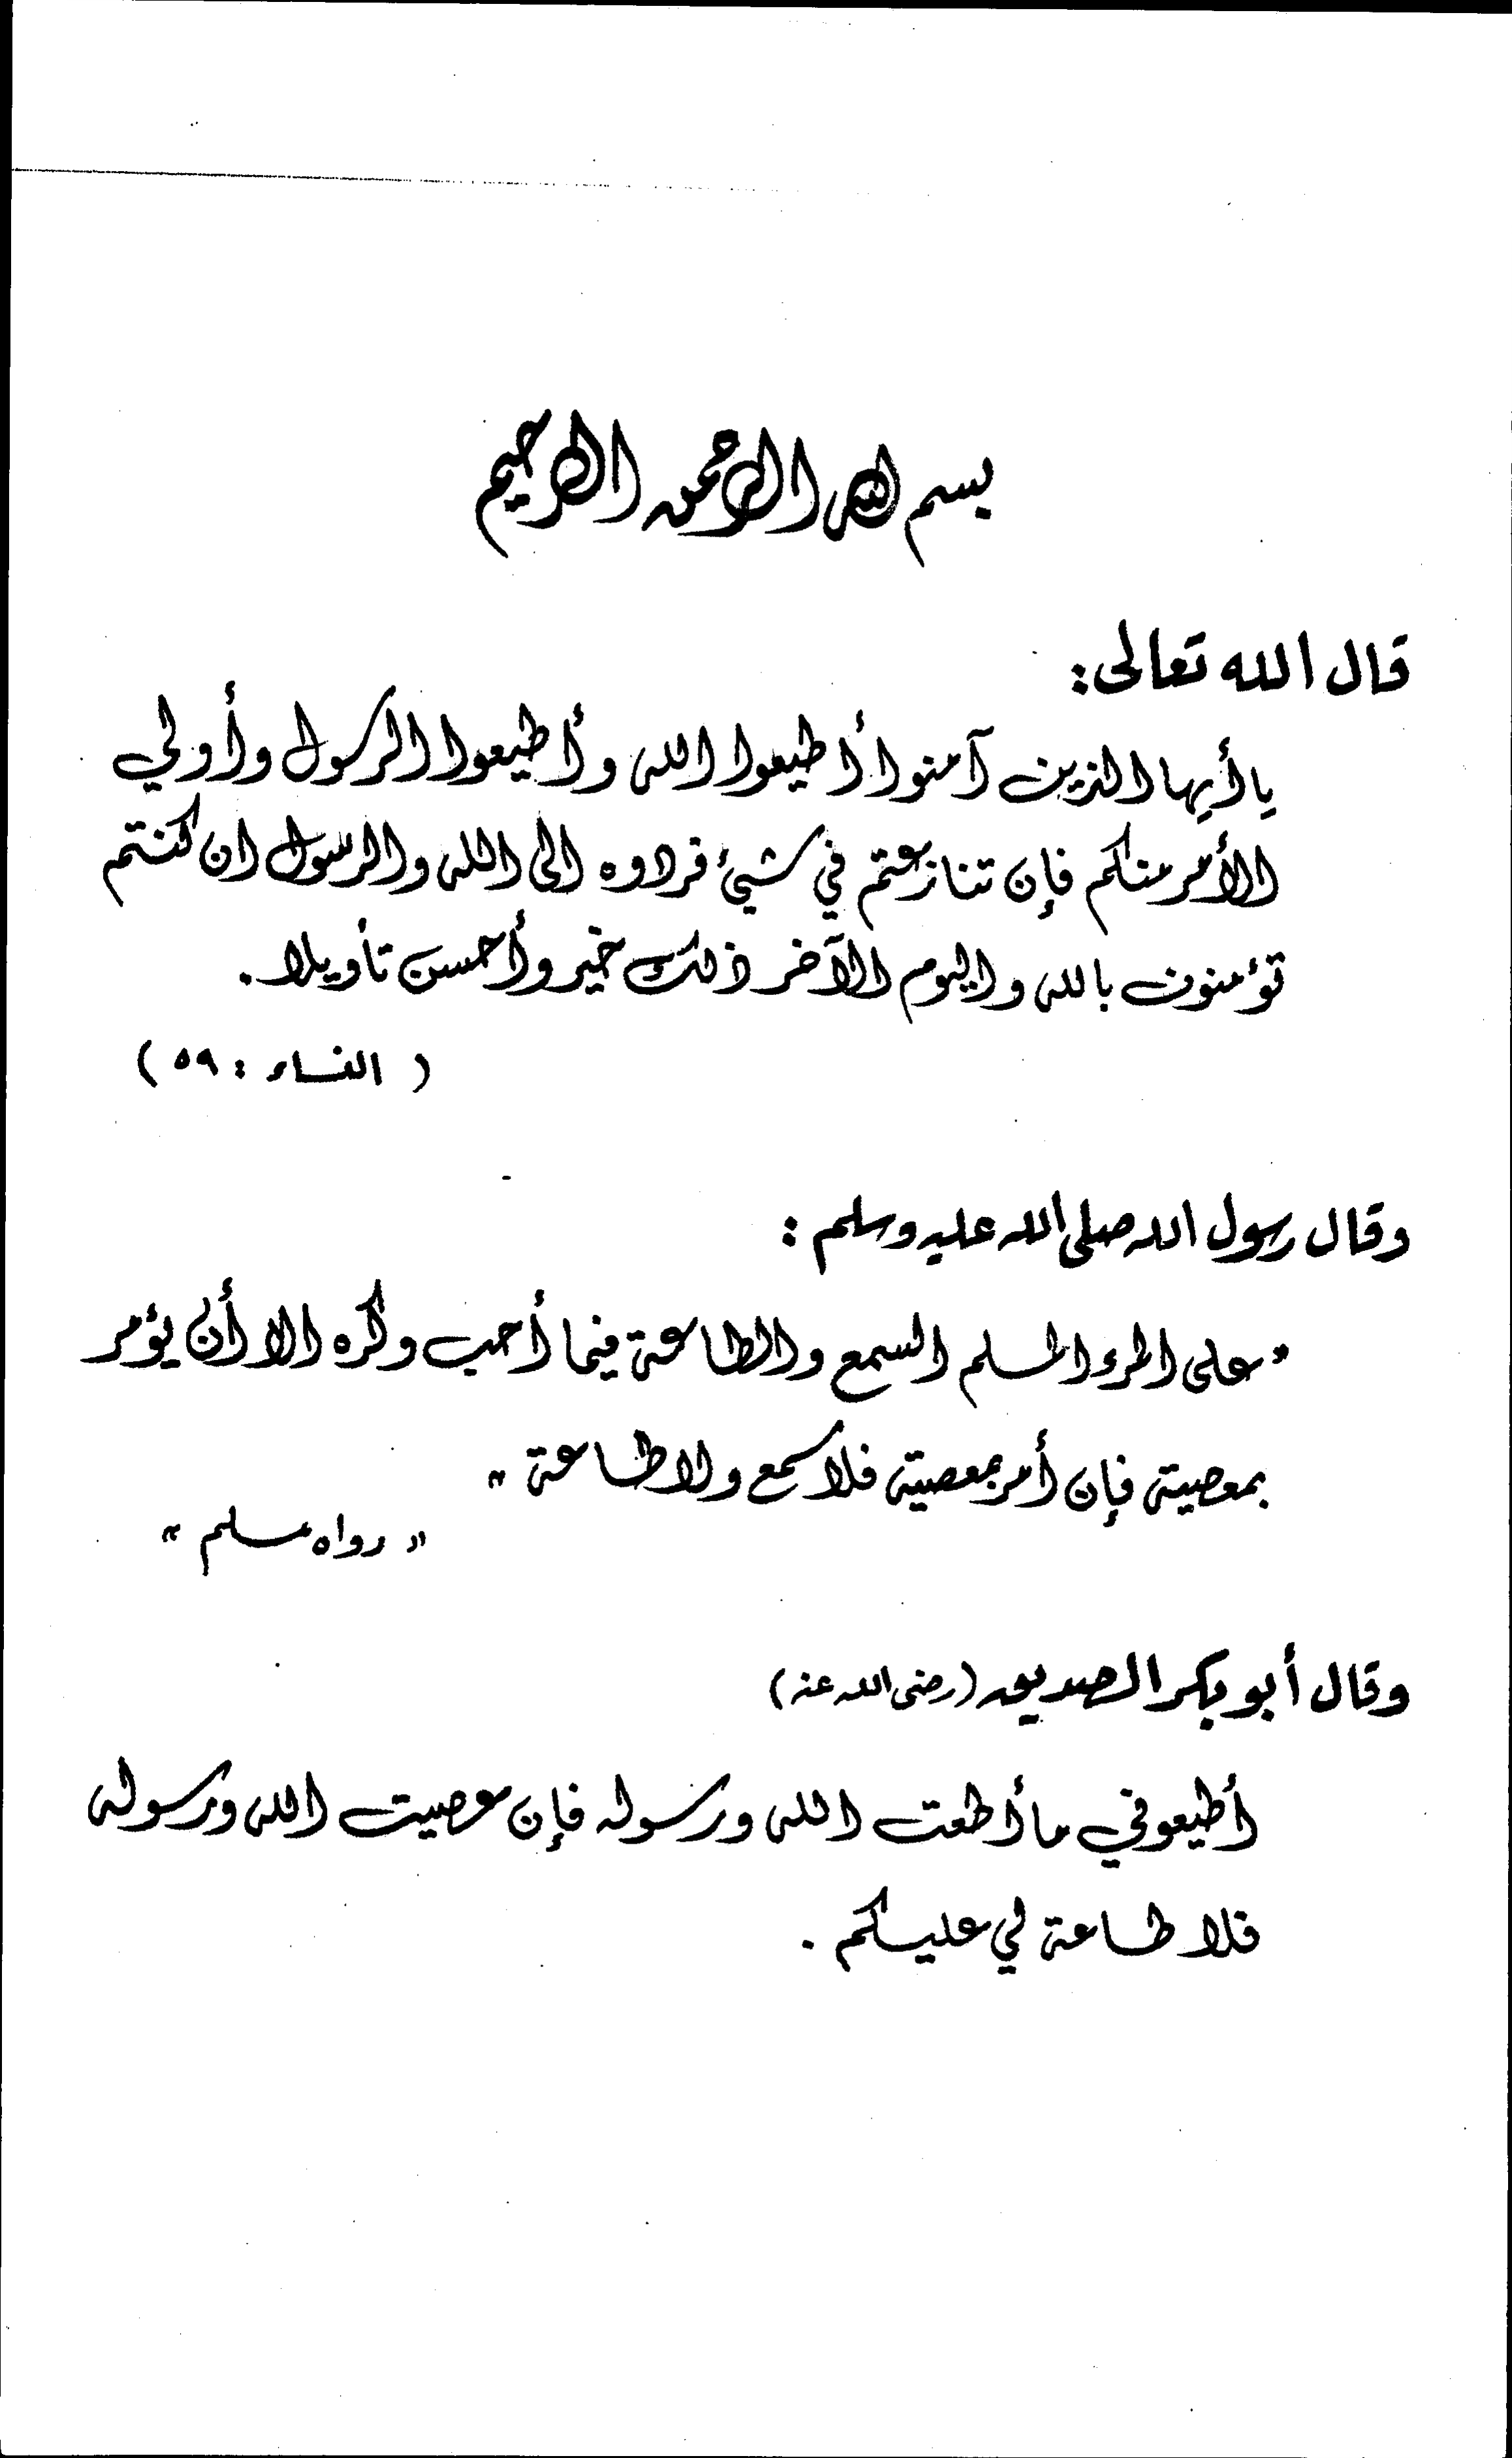 بسم الله الرحمن الرحيم
قال الله تعالى:
يا أيها الذين آمنوا أطيعوا الله وأطيعوا الرسول وأولي
الأمر منكم فإن تنازعتم في شيئ فردوه الى الله والرسول ان كنتم
تؤمنون بالله واليوم الآخر ذلك خير وأحسن تأويلا.
( النساء : ٥٩ )
وقال رسول الله صلى الله عليه وسلم :
"على المرء المسلم السمع والطاعة فيما أحب وكره الا أن يؤمر
بمعصية فإن أمر بمعصية فلا سمع ولا طاعة"
"رواه مسلم"
وقال أبو بكر الصديق (رضى الله عنه)
أطيعوني ما أطعت الله ورسوله فإن عصيت الله ورسوله
فلا طاعة لي عليكم .